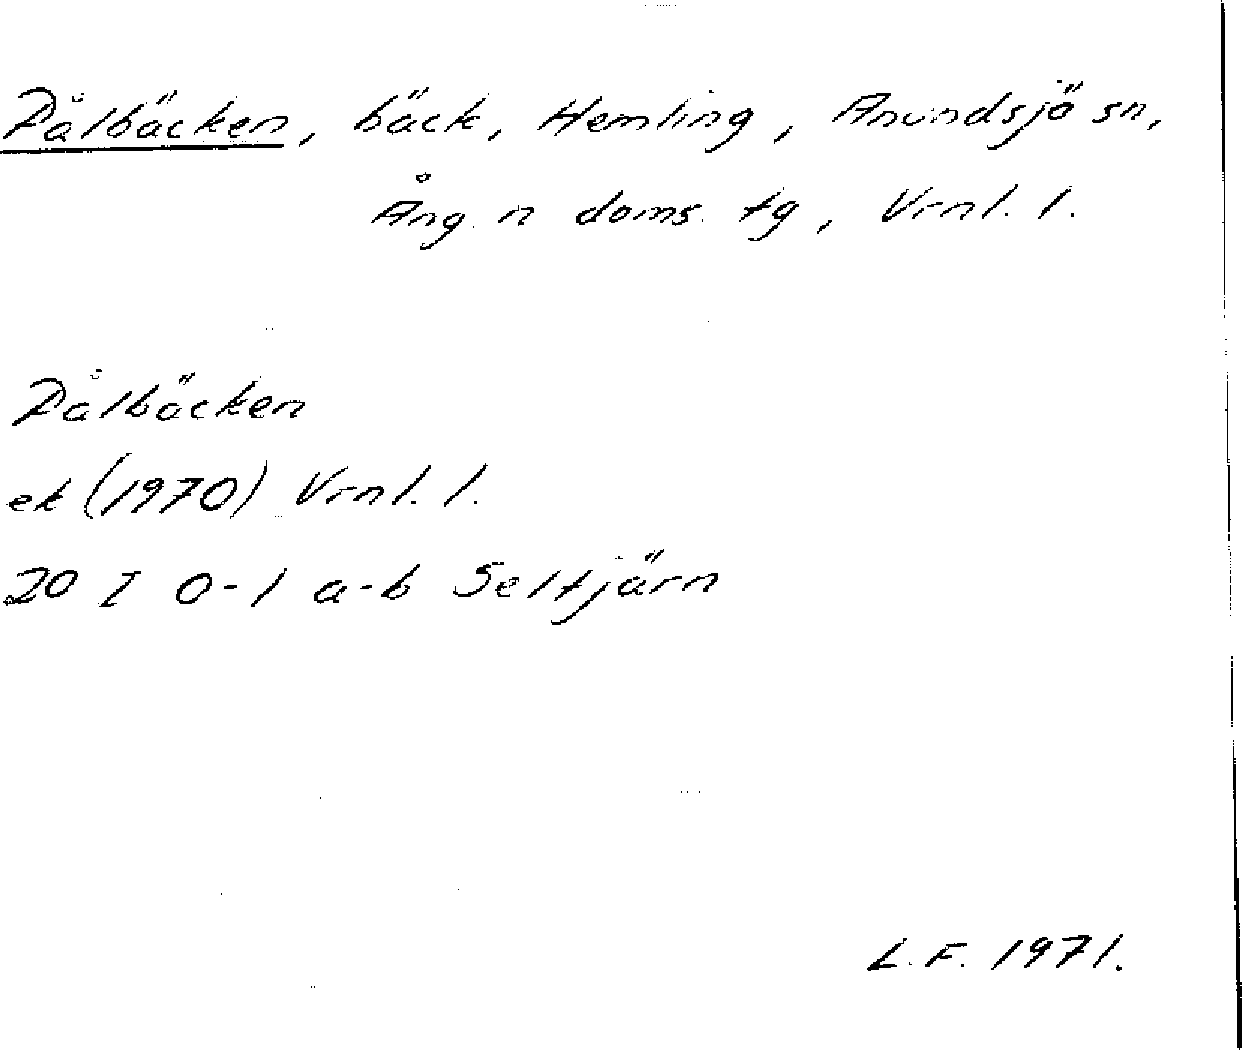 Pålbäcken, bäck, Hemling, Anundsjö sn,
Ång. n doms. tg, Vrnl. l.
Pålbäcken
ek (1970) Vrnl. l.
20 I 0-1 a-b Seltjärn
L.F. 1971.